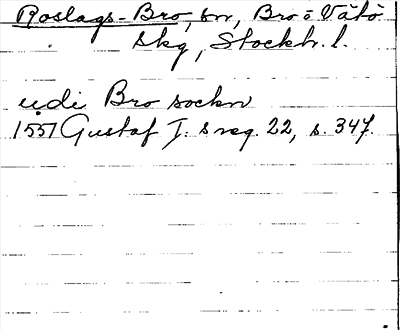 Roslags-Bro, sn, Bro o Vätö
skg, Stockh. l.
udi Bro sockn
1557 Gustaf I:s reg. 22, s. 347.